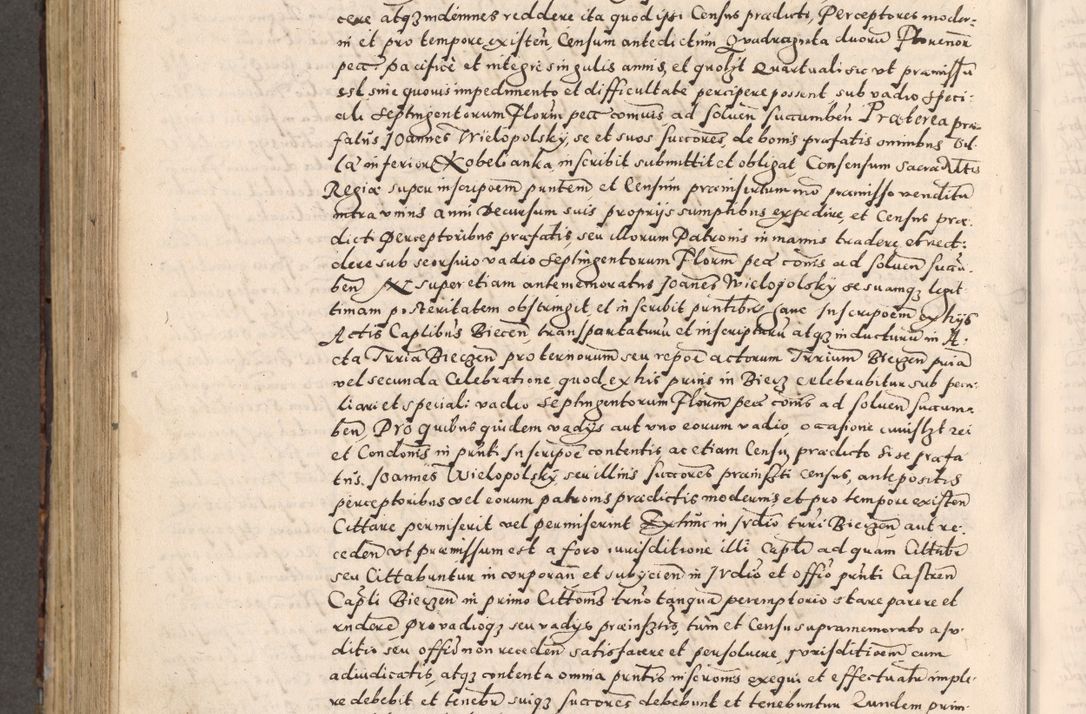 cere atqz indemnes reddere ita quod ipsi Census praedicti, Perceptores moder-
ni et pro tempore existen, Censum antedictum Quadraginta duorum Florenor
pecc pacifice et integre singulis annis, et quolzt Quartuali sic ut praemissu
est sine quovis impedimento et difficultate percipere possent sub vadio speci-
ali Septingentorum Florm pecc comuis ad solven succumben Praeterea prae-
fatus Joannes Wielopolsky, se et suos succores, de bonis praefatis omnibus Vil-
la inferiore Kobelianka, inscribit submittit et obligat Consensum Sacrae Mttis
Regiae super inscripoem pūntem et Censum praeinsertum mo praemisso venditu
intra unius anni Decursum suis proprijs sumptibus expedire, et Census prae-
dicti Perceptoribus praefatis, seu illorum Patronis in manus tradere et red-
dere sub seorsivo vadio Septingentorum Florm pecc comis ad solven succu-
ben Et super etiam antememoratus Joanes Wielopolsky se suamqz legit-
timam posteritatem obstringit et inscribit puntibz hanc Inscripoem ex hijs
Actis Caplibus Biecen, transportaturu et inscripturu atqz inducturum in A-
cta Trria Bieczen pro ternorum seu repoe actorum Trrium Bieczen pria
vel secunda Celebratione quod ex his prius in Biecz celebrabitur sub pecu-
liari et speciali vadio Septingentorum Florm pecc comis ad solven succum-
ben, Pro quibus quidem vadys aut uno eorum vadio, occasione cuiuslzt rei
et Condonis in punti Inscripoe contentis ac etiam Censu, praedicto si se praefa-
tus, Joannes Wielopolsky, seu illius succores praeinsti census, antepositis
perceptoribus vel eorum patronis praedictis modernis et pro tempore existen
Cittare permiserit vel permiserint Extunc in Judio trri Bieczen aut re-
ceden ut praemissum est a foro iurisditione illi Capli ad quam Cittabr
seu Cittabuntur incorporan et subycien in Judio et offio punti Castren
Capli Bieczen in primo Cittonis trno tanqua peremptorio stare parere et
rndere Pro vadioqz seu vadys praeinsztis, tum et Censu supramemorato a ju-
ditio seu offio non receden satisfacere et persoluere, jurisditioem cum
adiudicatis, atqz contenta omnia puntis inscronis exequi et effectuatu imple-
re debebit et tenebr suiqz succores debebunt et tenebuntur Eundem prim-